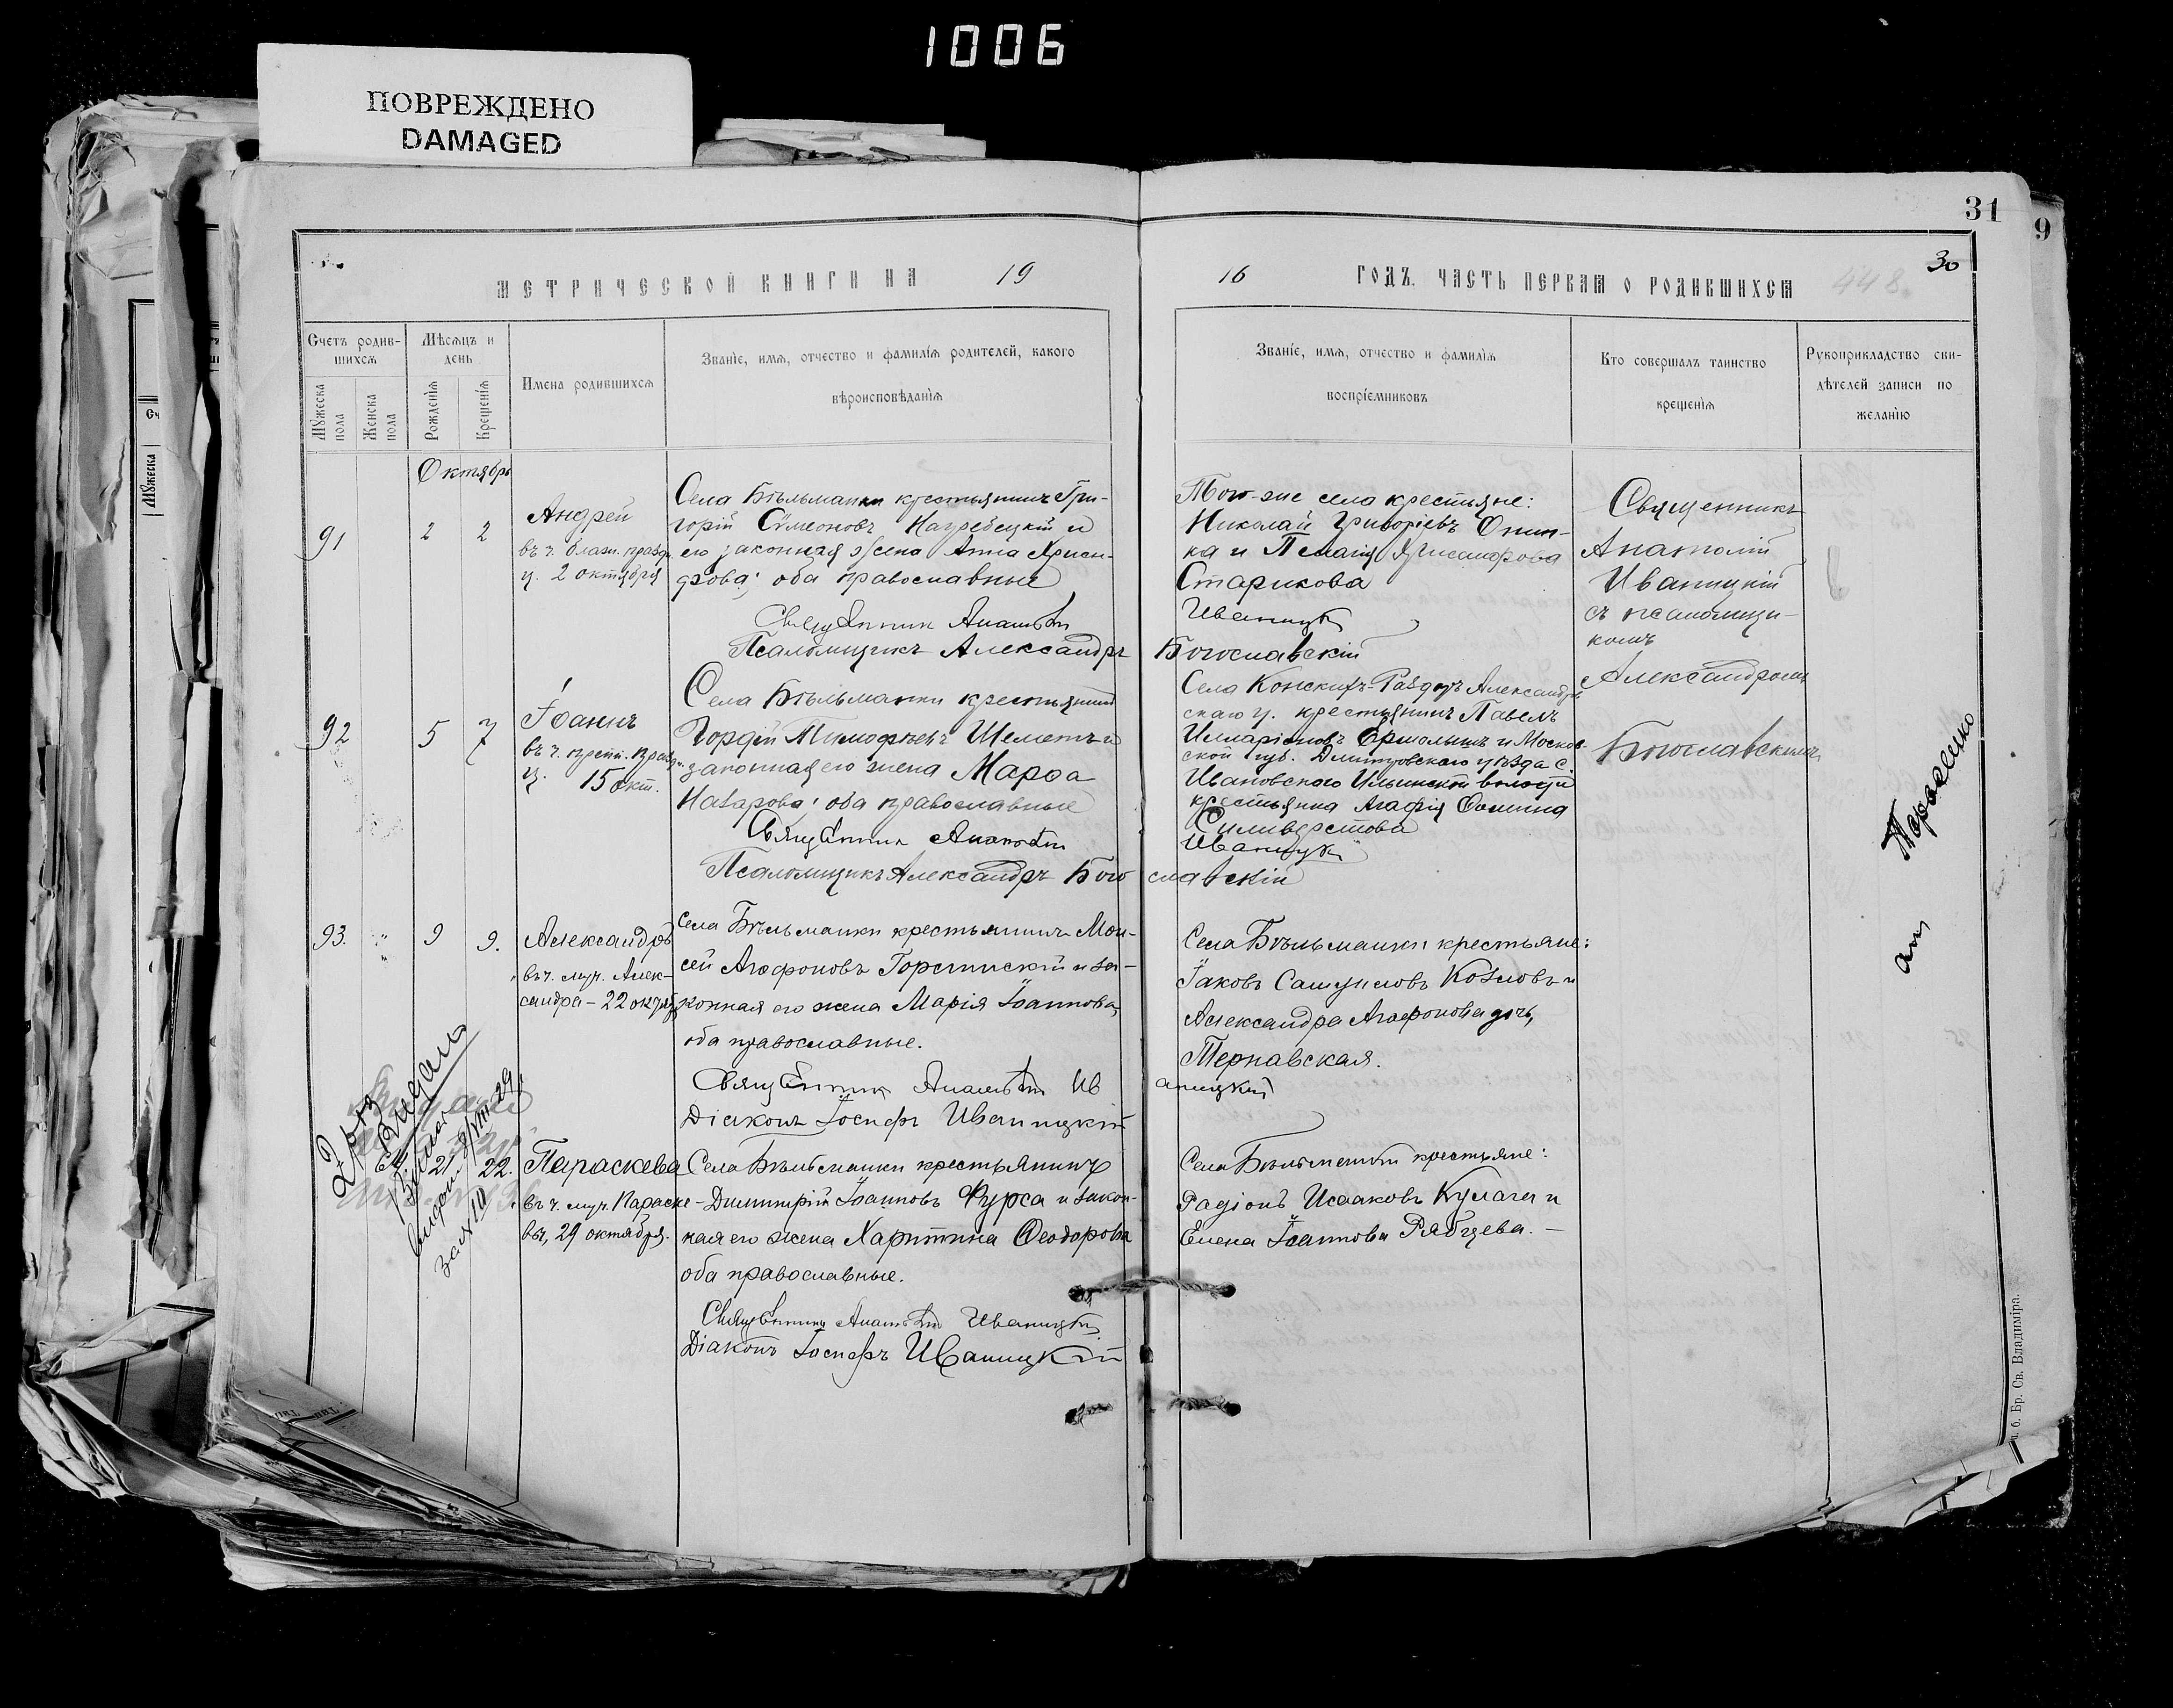 1006
ПОВРЕЖДЕНО
DAMAGED
31
9
30
МЕТРИЧЕСКОЙ КНИГИ НА 19
16 ГОДЪ. ЧАСТЬ ПЕРВАЯ О РОДИВШИХСЯ 448
Счетъ родив-
шихся
Мужеска пола
Женска пола
Мѣсяцъ и
день
Рожденія
Крещенія
Имена родившихся
Званіе, имя, отчество и фамилія родителей, какого
вѣроисповѣданія
Званіе, имя, отчество и фамилія
воспріемниковъ
Кто совершалъ таинство
крещенія
Рукоприкладство сви-
дѣтелей записи по
желанію
Мужеска
Октябрь
91
2
2
Андрей
ц. 2 октября
Села Бѣльманки крестьянинъ Гри-
горій Сѵмеоновъ Нагребецкій и
его законная жена Анна
оба православные
Священник Анатолій
Псаломщикъ Александръ
Того-же села крестьяне:
Николай Григоріевъ
ка и
Старикова
Иваницкій
Богославскій
Священникъ
Анатолій
Иваницкій
съ псаломщи-
комъ
Александромъ
Богославскимъ
92
5
7
Іоаннъ
15 окт.
Села Бѣльманки крестьянинъ
Гордій Тимофѣевъ Шеметъ и
законная его жена Марѳа
Назарова; оба православные
Священник Анатолій
Псаломщикъ Александръ Бого
Села Конскихъ-Раздоръ Александров
скаго у. крестьянинъ Павелъ
Илларіоновъ и Москов-
ской губ. Дмитровскаго уѣзда с.
Ивановскаго Ильинской волости
крестьянка Агафія Ѳомина
Силиверстова
Иваницкій
славскій
93.
9
9.
Александръ
въ ч. муч. Алек-
сандра – 22 октяб
Села Бѣльманки крестьянинъ Мои-
сей Агафоновъ Горпинскій и за-
конная его жена Марія Іоаннова,
оба православные.
Священник Анатолій Ив
Діаконъ Іосифъ Иваницкій
Села Бѣльманки крестьяне:
Іаковъ Самуиловъ Козловъ и
Александра Агафонова дочь,
Тернавская.
аницкій
21
22.
Параскева
въ ч. муч. Параске-
вы, 29 октября.
Села Бѣльманки крестьянинъ
Димитрій Іоанновъ Фурса и закон-
ная его жена Харитина Ѳеодорова
оба православные.
Священникъ Анатолій Иваницкій
Діаконъ Іосифъ Иваницкій
Села Бѣльманки крестьяне:
Радіонъ Исааковъ Кулага и
Елена Іоаннова Рябцева. –
Тараненко
б. Бр. Св. Владиміра.